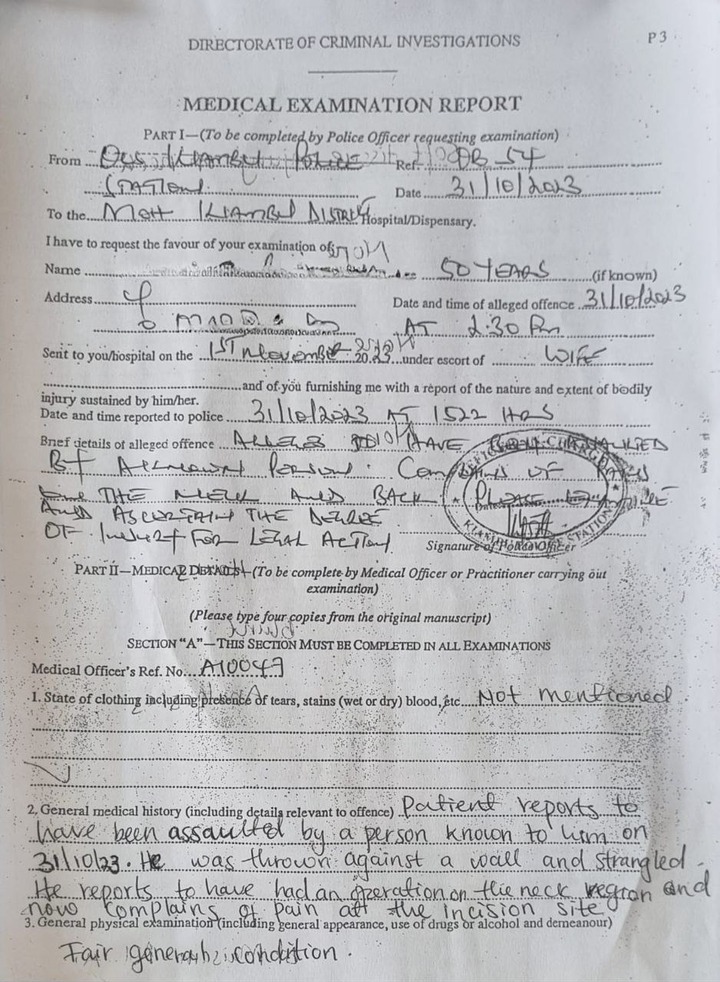 DIRECTORATE OF CRIMINAL INVESTIGATIONS
P 3
MEDICAL EXAMINATION REPORT
PART I—(To be completed by Police Officer requesting examination)
From KIAMBU POLICE Ref. OB 54
STATION Date 31/10/2023
To the MOH KIAMBU DISTRICT Hospital/Dispensary.
I have to request the favour of your examination of:
Name 50 YEARS (if known)
Address Date and time of alleged offence 31/10/2023
AT 2:30 Pm
Sent to you/hospital on the 1ST November 2023 under escort of WIFE
and of you furnishing me with a report of the nature and extent of bodily
injury sustained by him/her.
Date and time reported to police 31/10/2023 AT 1522 HRS
Brief details of alleged offence ALLEGES TO HAVE BEEN
BY A KNOWN PERSON. OF
THE NECK AND BACK PLEASE
AND ASCERTAIN THE DEGREE
OF INJURY FOR LEGAL ACTION
Signature of Police Officer
PART II—MEDICAL DETAILS—(To be complete by Medical Officer or Practitioner carrying out
examination)
(Please type four copies from the original manuscript)
SECTION "A"—THIS SECTION MUST BE COMPLETED IN ALL EXAMINATIONS
Medical Officer's Ref. No.
1. State of clothing including presence of tears, stains (wet or dry) blood, etc Not mentioned
2. General medical history (including details relevant to offence) Patient reports to
have been assaulted by a person known to him on
31/10/23. He was thrown against a wall and strangled.
He reports to have had an operation on the neck region and
now complains of pain at the incision site
3. General physical examination (including general appearance, use of drugs or alcohol and demeanour)
Fair general condition.